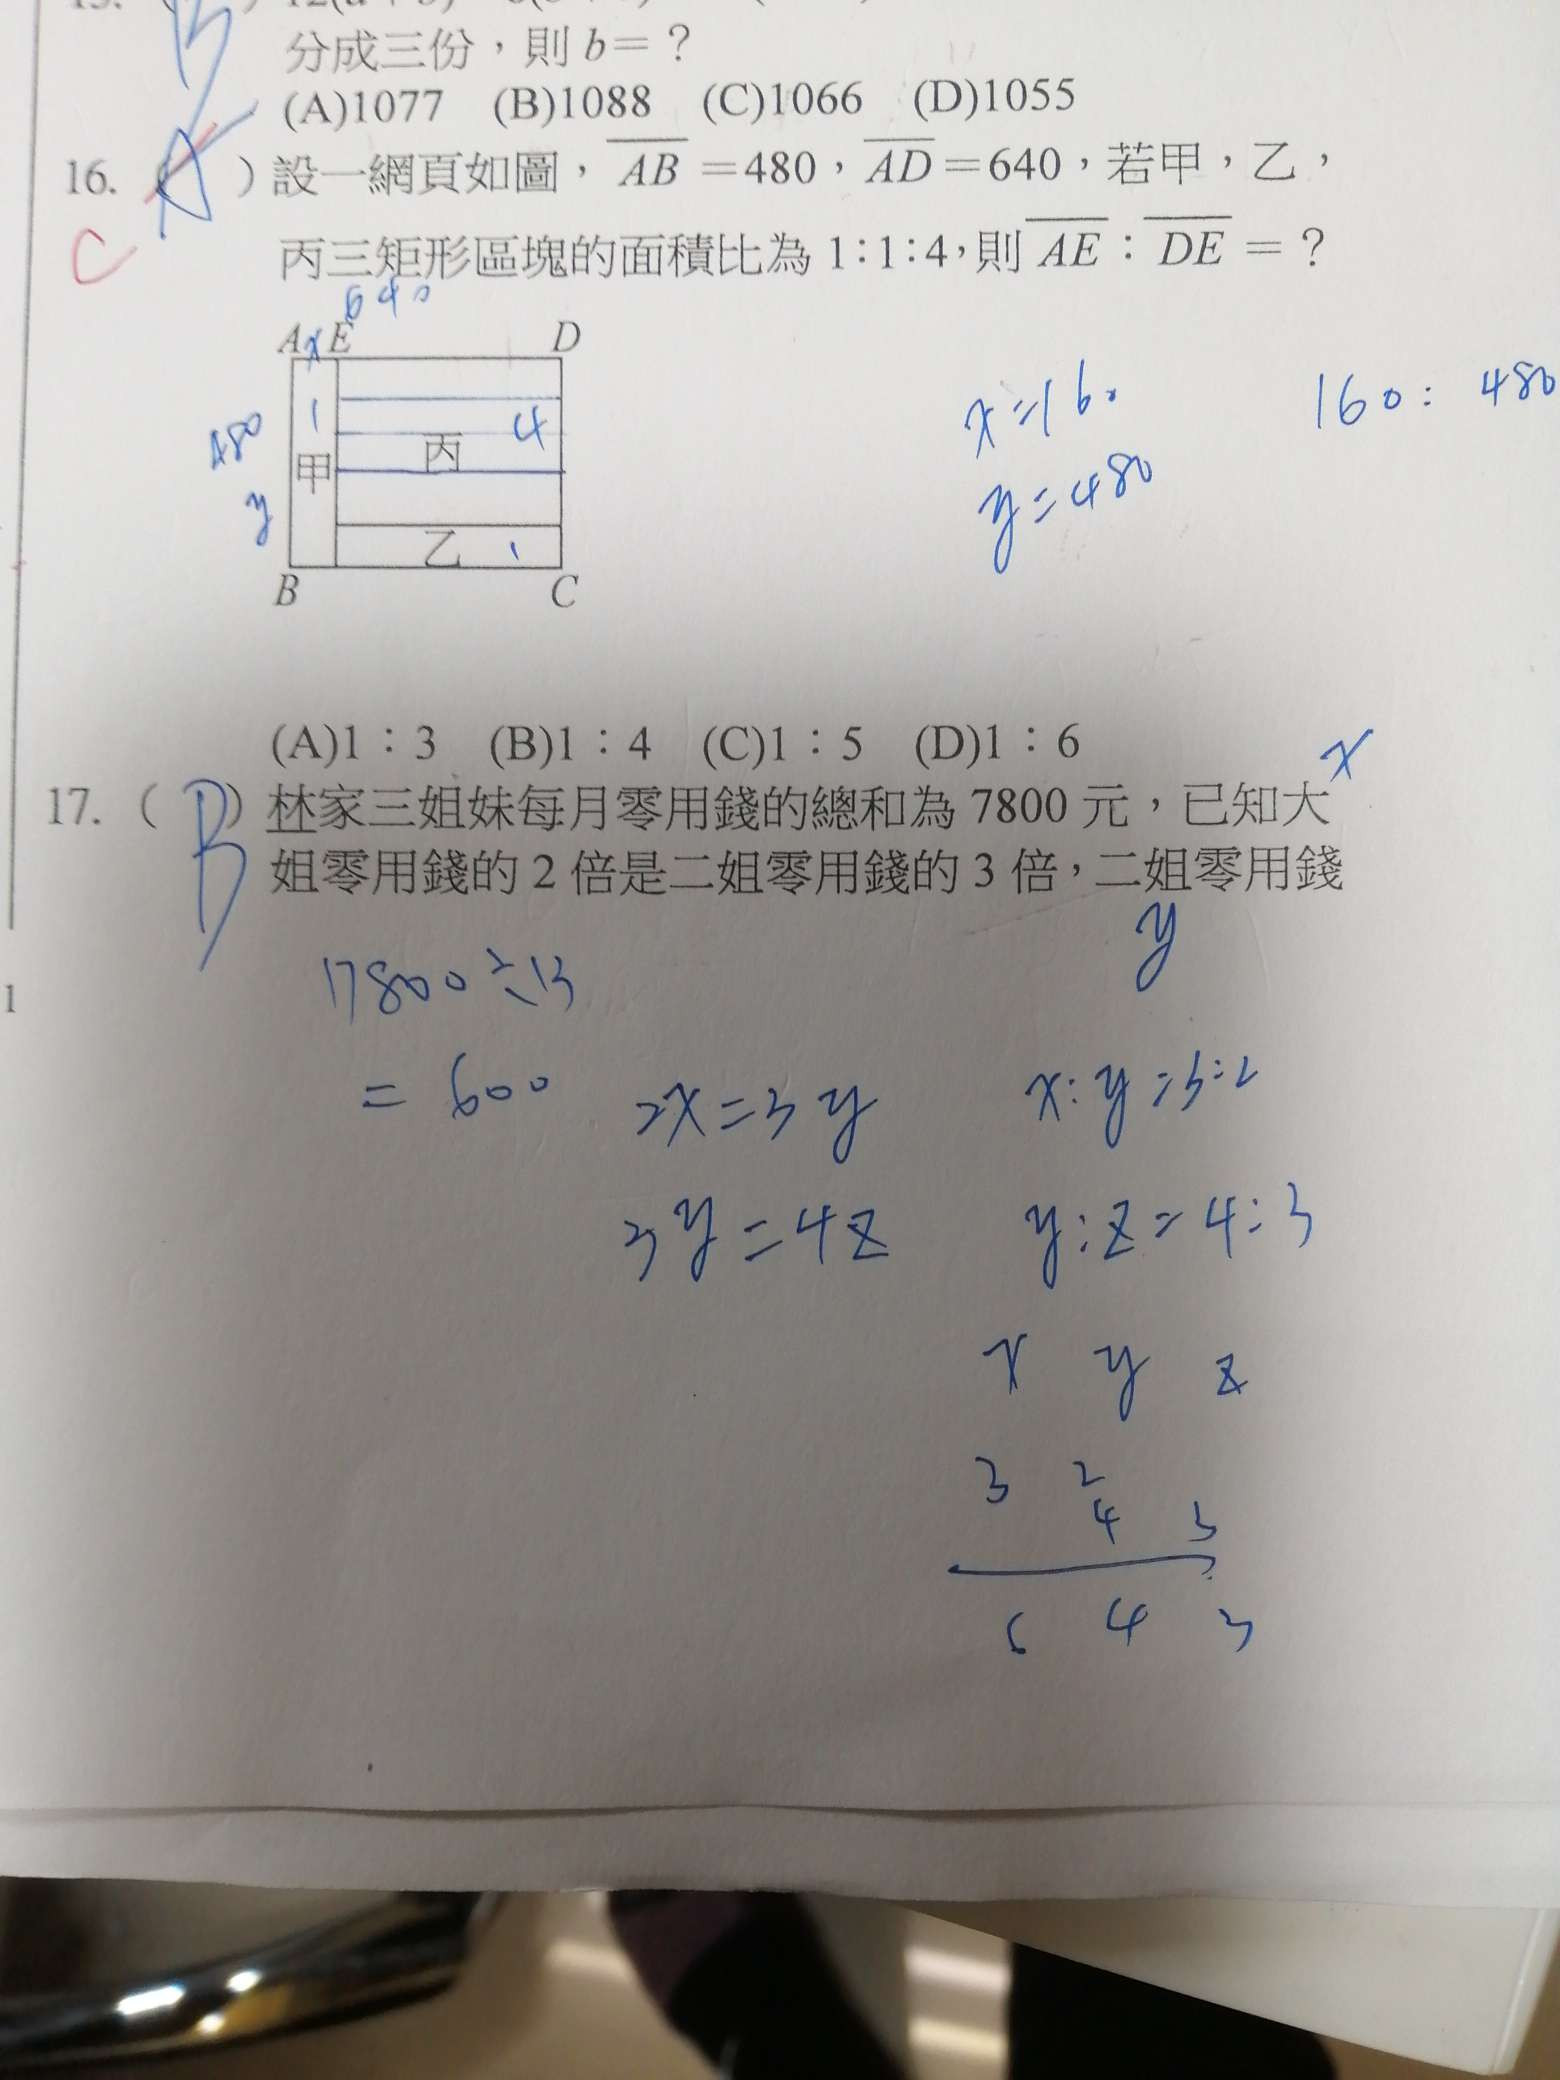 分成三份，則 b＝？
(A)1077 (B)1088 (C)1066 (D)1055
16. ( A ) 設一網頁如圖，AB＝480，AD＝640，若甲，乙，
C
丙三矩形區塊的面積比為 1：1：4，則 AE：DE＝？
640
A x E D
480 1 4
甲 丙
y
乙 1
B C
x=160
y=480
160：480
(A)1：3 (B)1：4 (C)1：5 (D)1：6
x
17. ( B ) 林家三姐妹每月零用錢的總和為 7800 元，已知大
姐零用錢的 2 倍是二姐零用錢的 3 倍，二姐零用錢
y
17800÷13
= 600
2x=3y x:y=3:2
3y=4z y:z=4:3
x y z
3 2
4 3
6 4 3
1